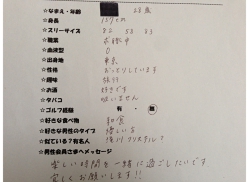 ☆なまえ・年齢 28歳
☆身長 157cm
☆スリーサイズ 82 58 83
☆職業 求職中
☆血液型 O
☆出身地 東京
☆性格 おっとりしています
☆趣味 旅行
☆お酒 好きです
☆タバコ 吸いません
☆ゴルフ経験 有・無
☆好きな食べ物 和食
☆好きな男性のタイプ 優しい方
☆似ている?有名人 滝川クリステル?
☆男性会員さまへメッセージ
楽しい時間を一緒に過ごしたいです
宜しくお願いします!!